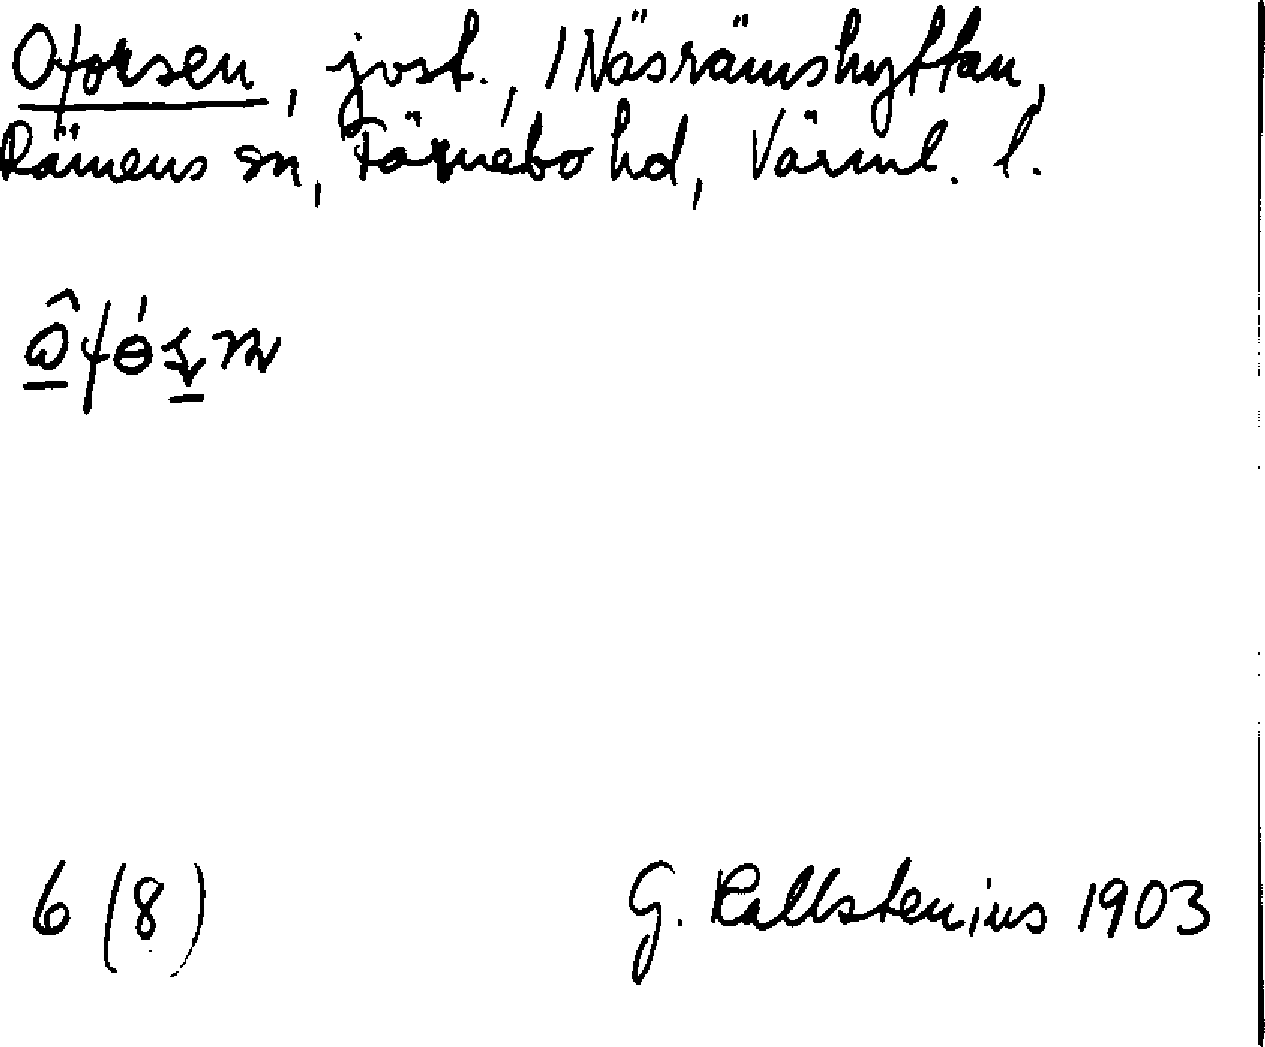 Oforsen, jost., 1 Näsrämshyttan,
Rämens sn, Färnebo hd, Värml. l.
6 (8)
G. Kallstenius 1903